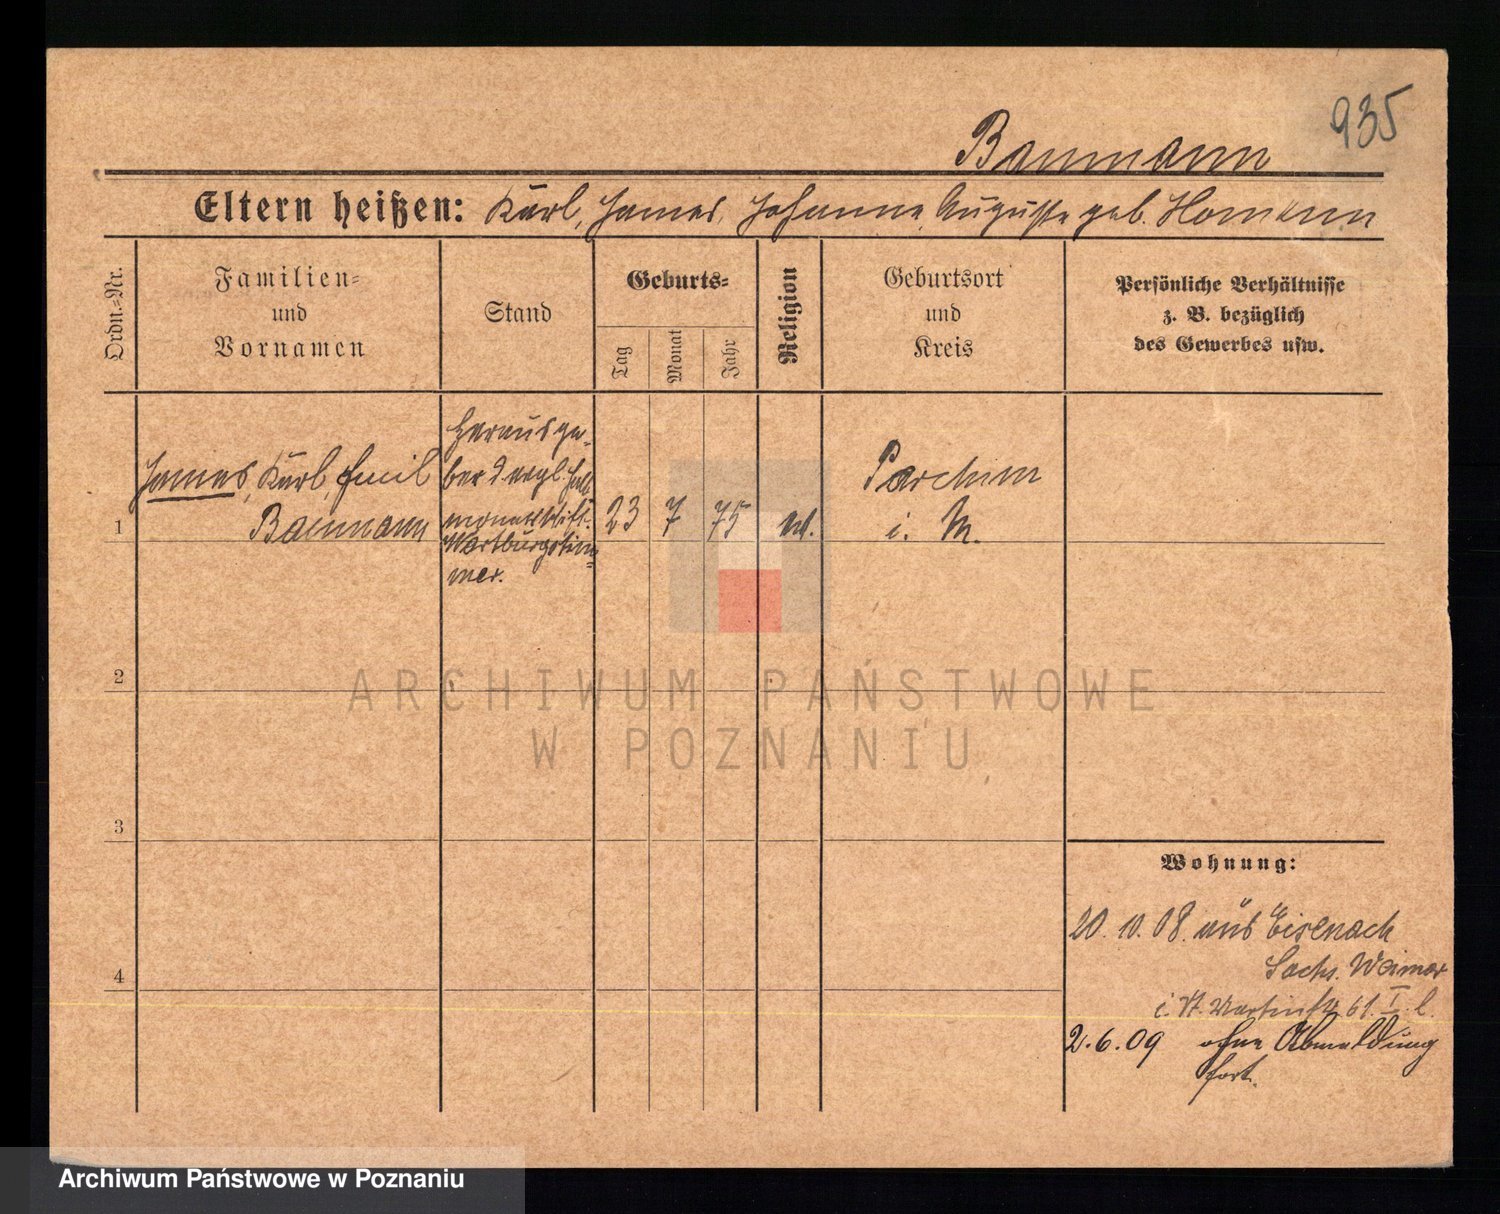 935
Baumann
Eltern heißen: Karl, James, Johanne, Auguste geb. Homann
Ordn.-Nr.
Familien-
und
Vornamen
Stand
Geburts-
Tag
Monat
Jahr
Religion
Geburtsort
und
Kreis
Persönliche Verhältnisse
z. B. bezüglich
des Gewerbes usw.
1
James, Karl, Emil
Baumann
Herausge-
ber d. evgl. Halb
monatsschift.
Wartburgstim-
men.
23
7
75
ev.
Parchim
i. M.
2
3
4
Wohnung:
20. 10. 08. aus Eisenach
Sachs. Weimar
i. St. Martinstr. 61. I. l.
2.6.09 ohne Abmeldung
fort.
ARCHIWUM PAŃSTWOWE
W POZNANIU
Archiwum Państwowe w Poznaniu